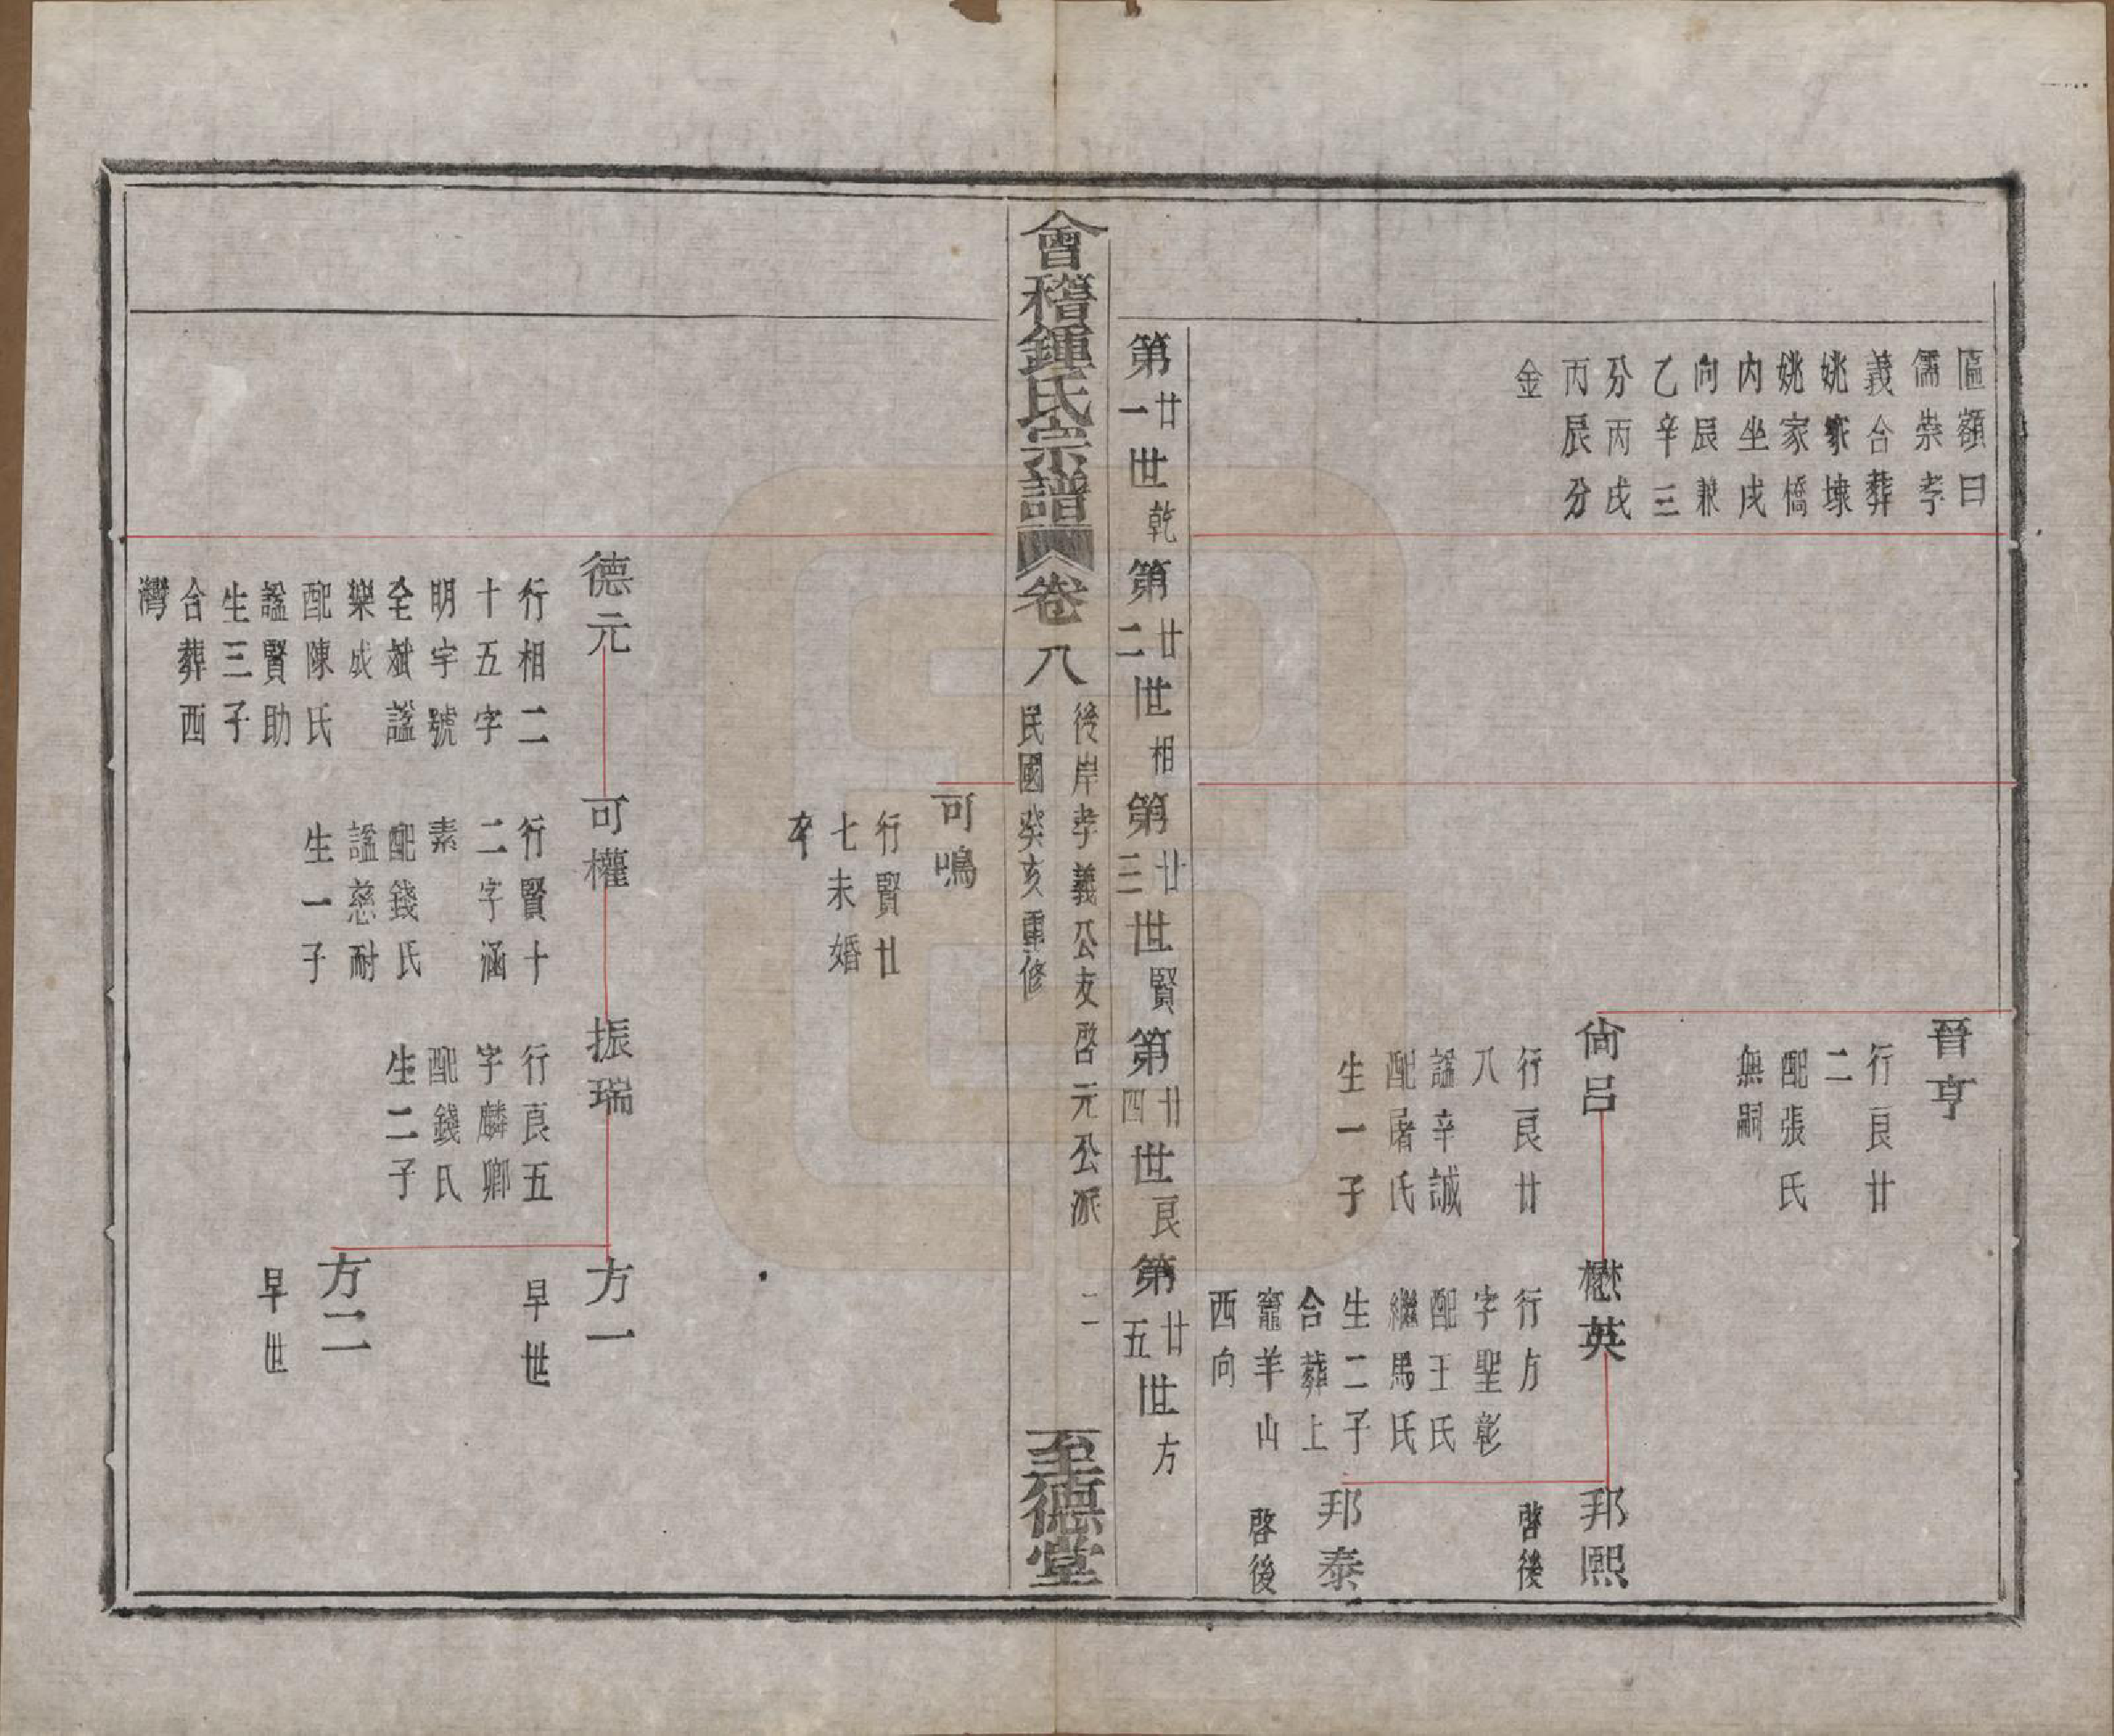 匾額曰
儒崇孝
義合葬
姚家埭
姚家橋
內坐戌
向辰兼
乙辛三
分丙戌
丙辰分
金
晉亨
行良廿
二
配張氏
無嗣
尙呂
行良廿
八
謚辛誠
配屠氏
生一子
懋英
行方
字聖彰
配王氏
繼馬氏
生二子
合葬上
竈羊山
西向
邦熙
啓後
邦泰
啓後
第廿一世乾
第廿二世相
第廿三世賢
第廿四世良
第廿五世方
會稽鍾氏宗譜
卷八
後岸孝義公友啓元公派
民國癸亥重修
二
至德堂
可鳴
行賢廿
七未婚
卒
德元
行相二
十五字
明宇號
全斌謚
樂成
配陳氏
謚賢助
生三子
合葬西
灣
可權
行賢十
二字涵
素
配錢氏
謚慈耐
生一子
振瑞
行良五
字麟卿
配錢氏
生二子
方一
早世
方二
早世